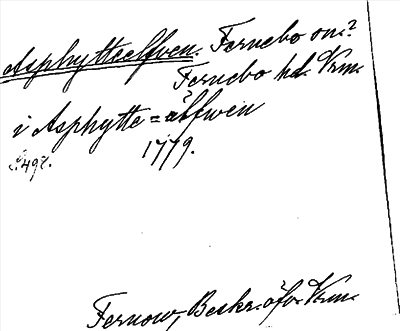 Asphytteelfven. Fernebo sn.?
Fernebo hd. Vrm.
i Asphytte=älfwen
s. 497. 1779.
Fernow, Beskr. öfv. Vrm.